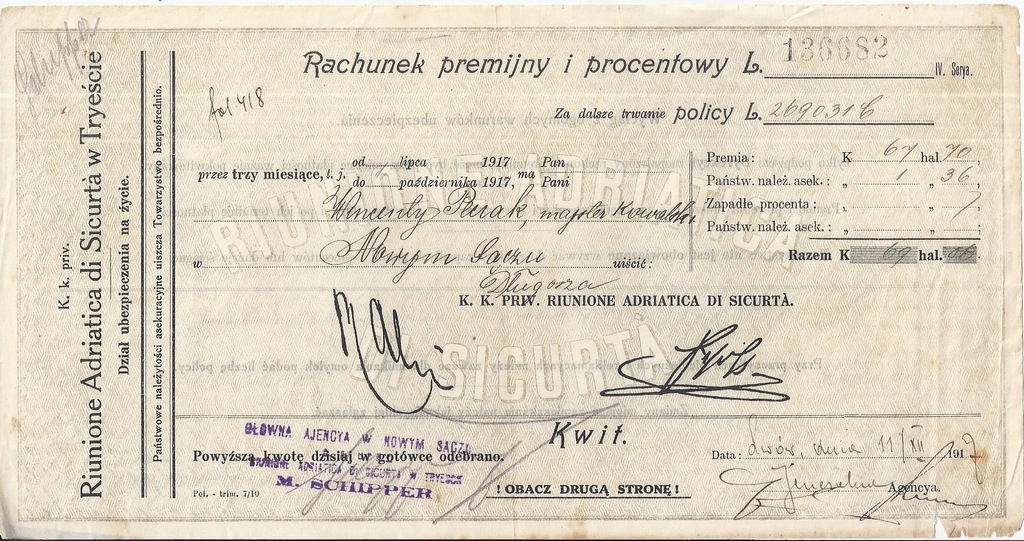 Schipper
K. k. priv.
Riunione Adriatica di Sicurtà w Tryeście
Dział ubezpieczenia na życie.
Państwowe należytości asekuracyjne uiszcza Towarzystwo bezpośrednio.
Rachunek premijny i procentowy L. 136682 IV. Serya.
fol 418
Za dalsze trwanie policy L. 269031
przez trzy miesiące, t. j. od lipca 1917 do października 1917, ma Pan Pani
Wincenty, majster Kowalski
w Nowym Sączu uiścić:
Długosza
Premia: K 67 hal. 70,
Państw. należ. asek.: „ 1 „ 36,
Zapadłe procenta: „ „ ,
Państw. należ. asek.: „ „ ,
Razem K 69 hal. 06.
K. K. PRIV. RIUNIONE ADRIATICA DI SICURTÀ.
RIUNIONE ADRIATICA
DI SICURTÀ
Kwit.
GŁOWNA AJENCYA W NOWYM SĄCZU
Powyższą kwotę dzisiaj w gotówce odebrano.
RIUNIONE ADRIATICA DI SICURTA w TRYEŚCIE
M. SCHIPPER
Data: Lwów, dnia 11/XII 1917
Agencya.
Pol. - trim. 7/10
! OBACZ DRUGĄ STRONĘ !